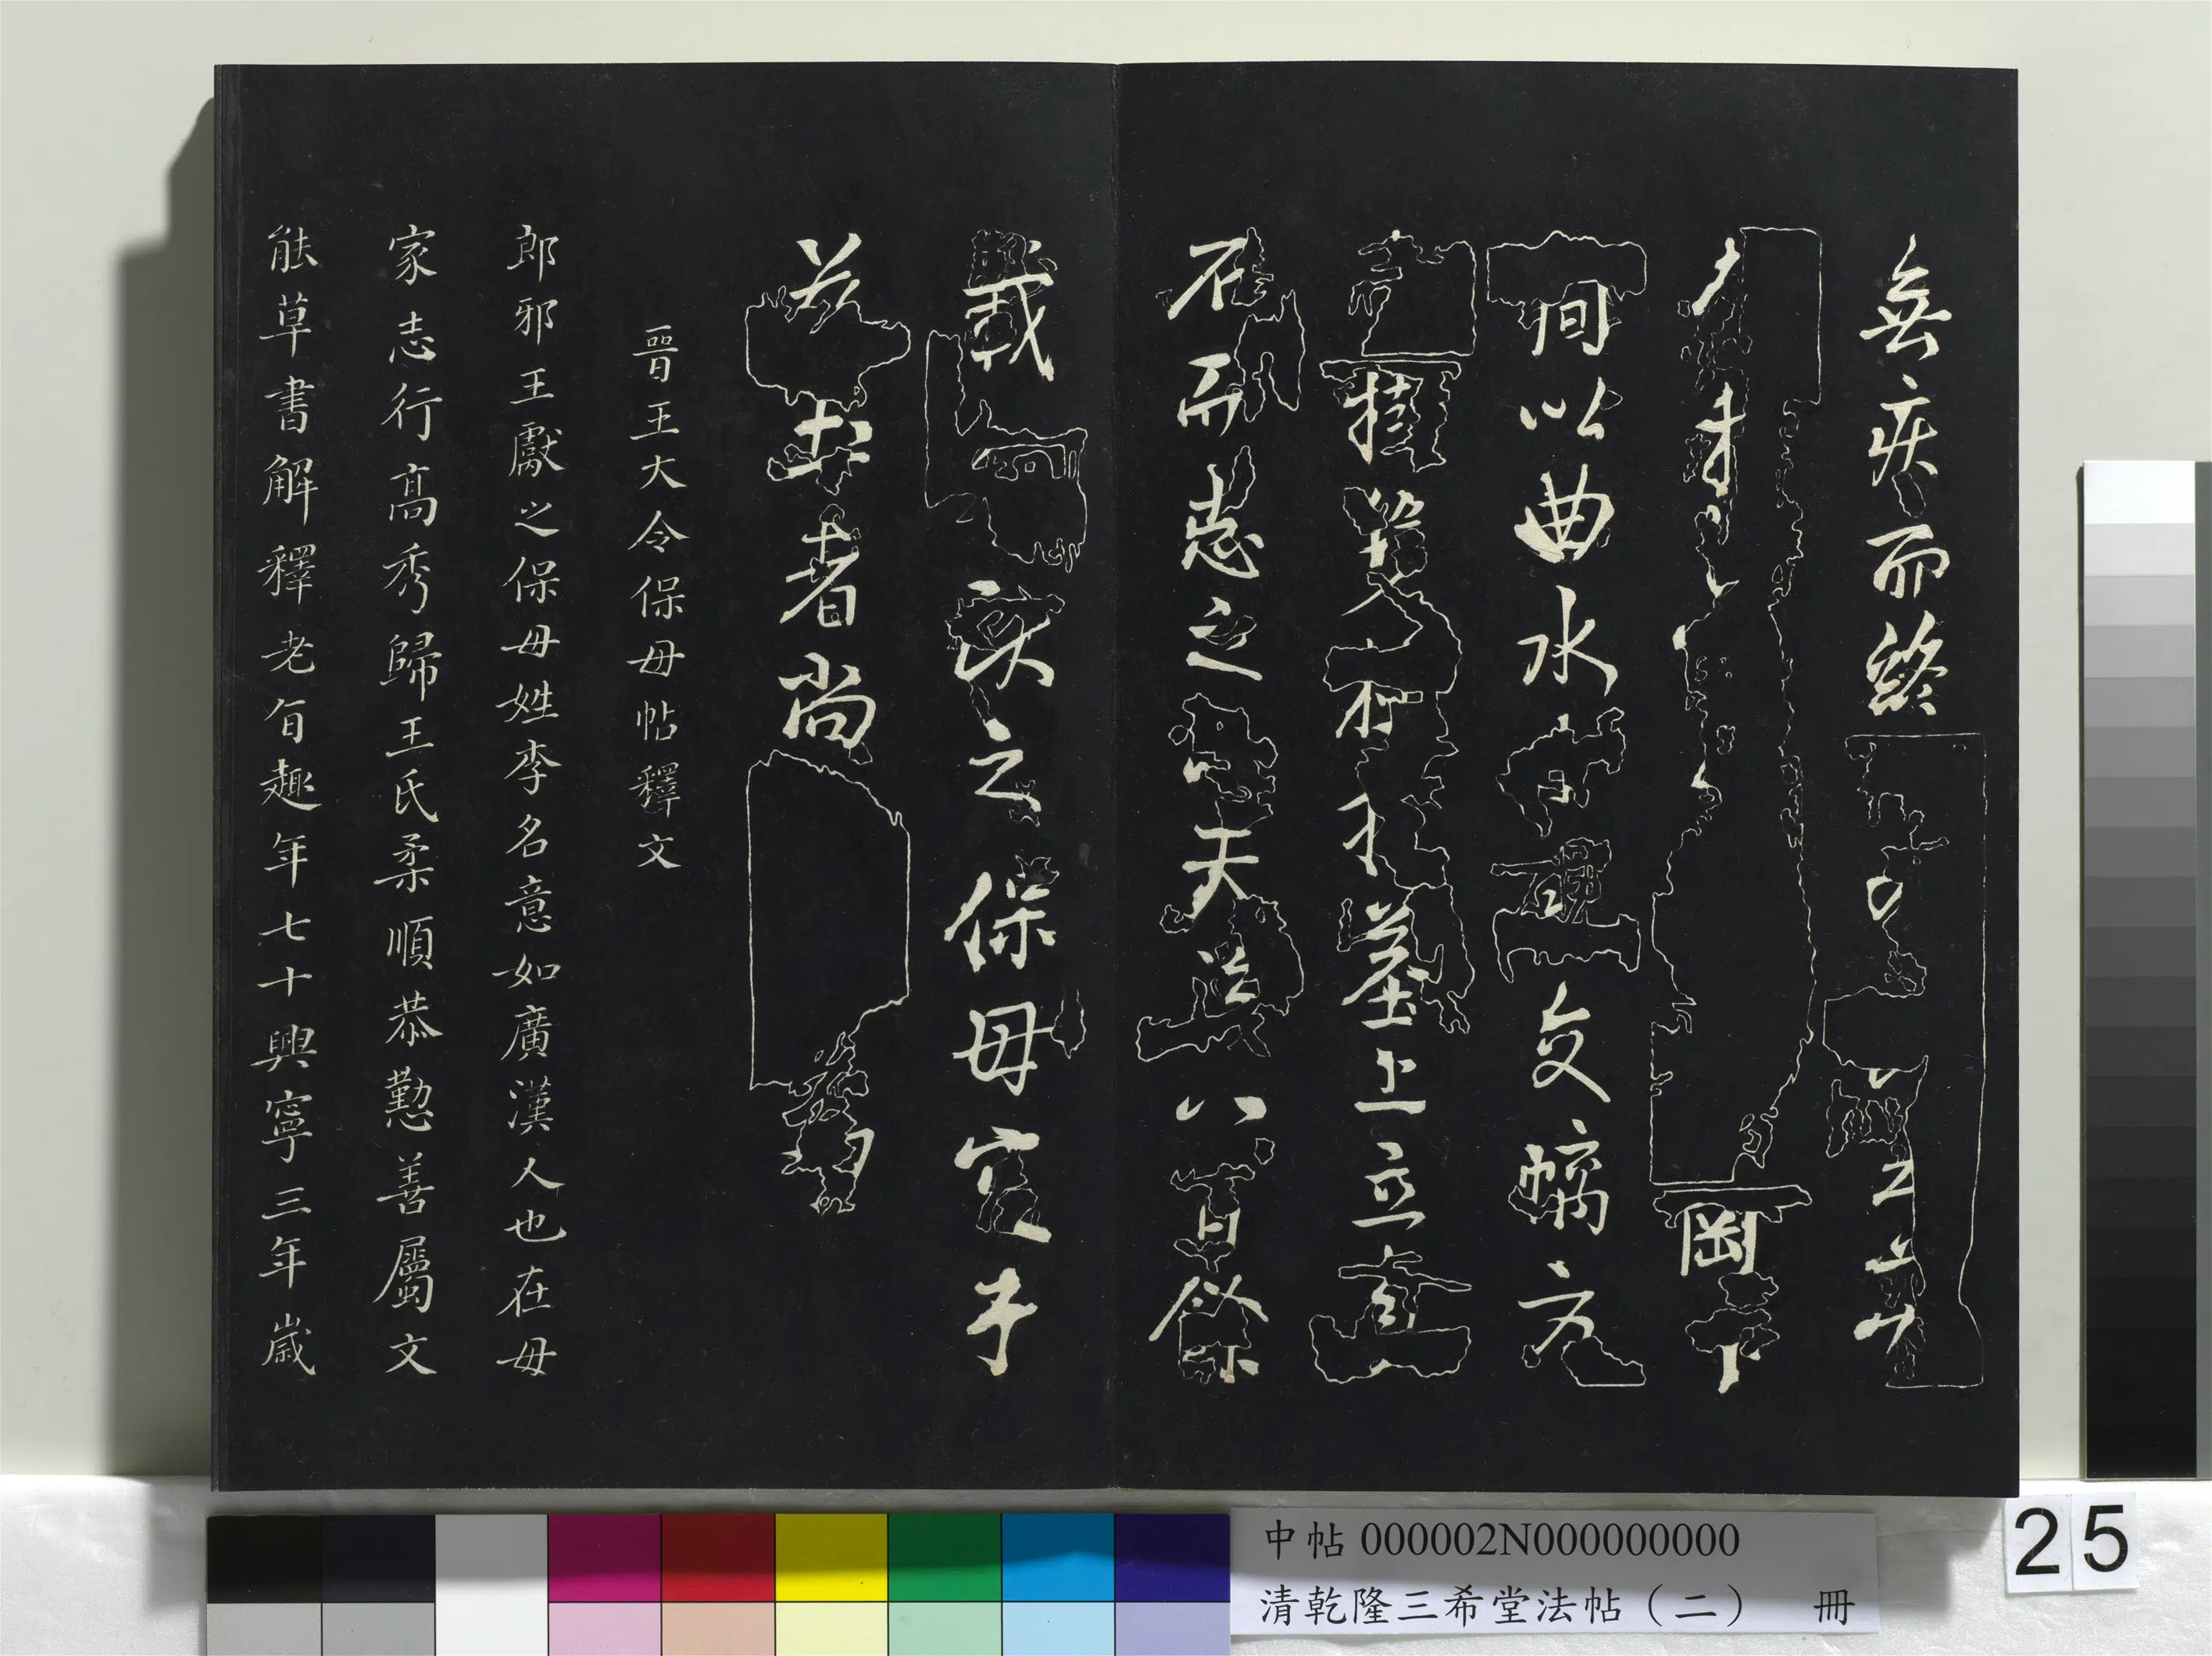 無疾而終
岡下
間以曲水
交螭方
樹
墓上立貞
石而志之
天
八百餘
載
獻之保母宮于
茲土者尚
晉王大令保母帖釋文
郎邪王獻之保母姓李名意如廣漢人也在母
家志行高秀歸王氏柔順恭懃善屬文
能草書解釋老旨趣年七十興寧三年歲
中帖 000002N000000000
清乾隆三希堂法帖（二） 冊
25